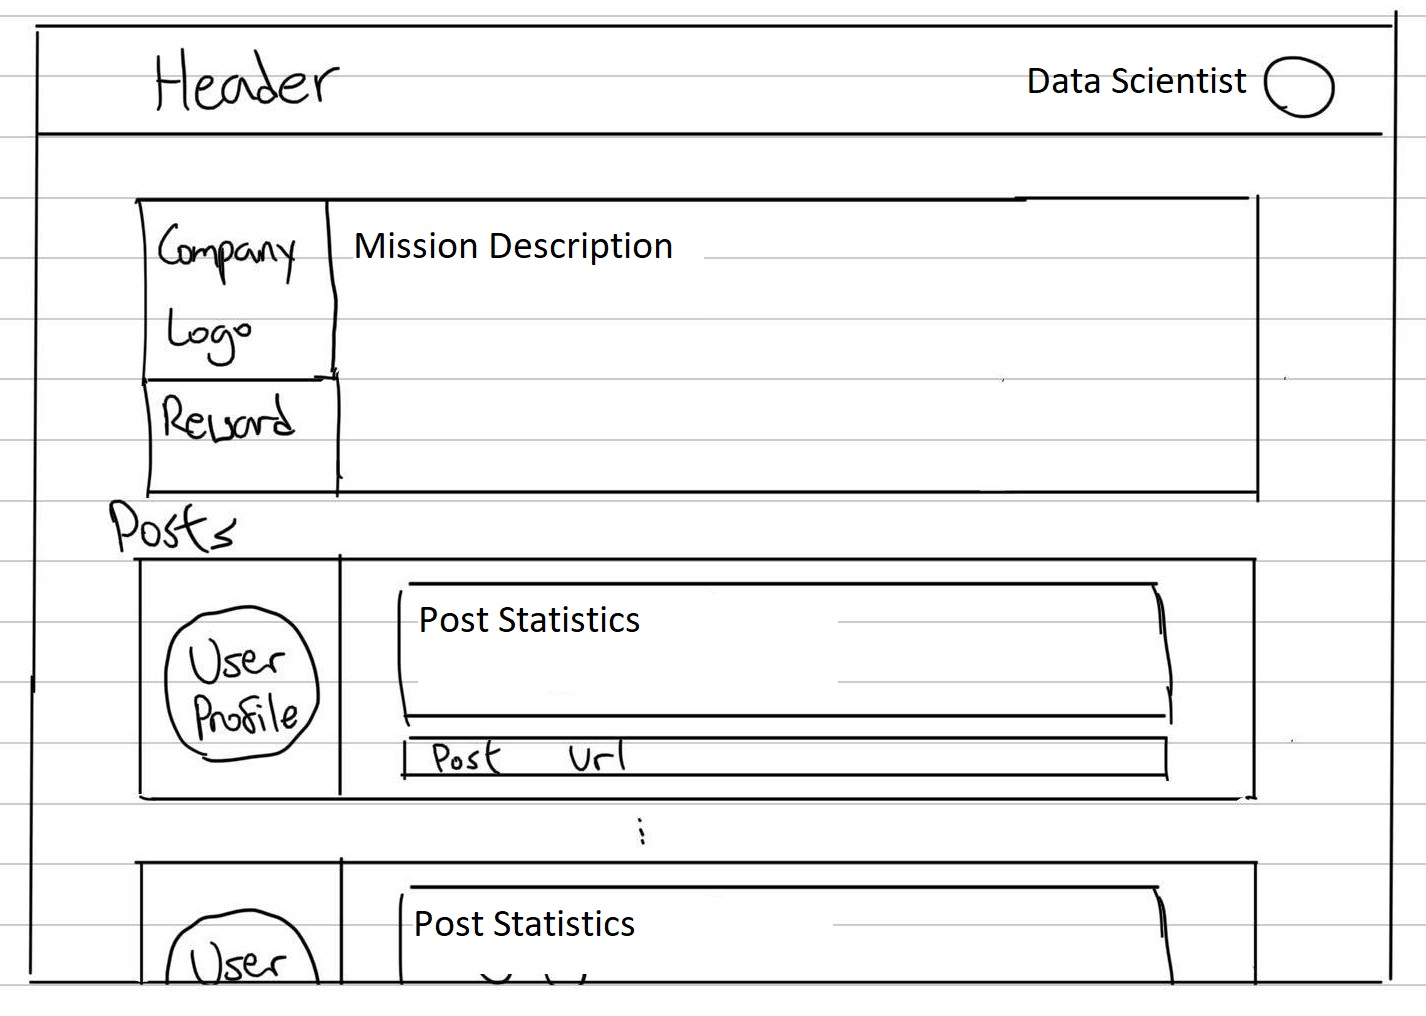 Header
Data Scientist
Company
Logo
Mission Description
Reward
Posts
User
Profile
Post Statistics
Post Url
User
Post Statistics